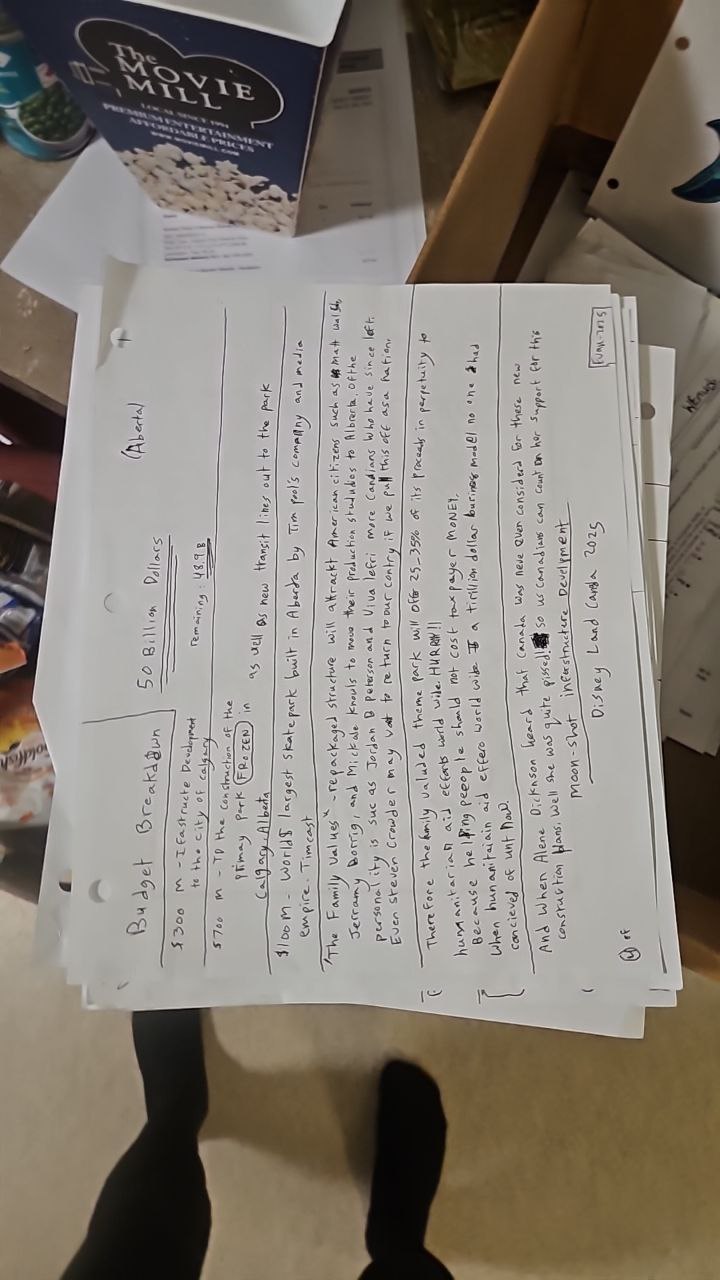 The
MOVIE
MILL
LOCAL SINCE 1994
PREMIUM ENTERTAINMENT
AFFORDABLE PRICES
WWW.MOVIEMILL.COM
Budget Breakdown 50 Billion Dollars (Aberta)
$300 M - Ifastructe Development
to the City of Calgary remaining: 48.9 B
$700 M - TD the construction of the
primay park FROZEN in as well as new transit lines out to the park
Calgary, Alberta
$100 M - Worlds largest skatepark built in Aberta by Tim pool's compnny and media
empire. Timcast
"The Family Values" - repackaged structure will attrackt American citizens such as Matt Walsh,
Jerramy Borrig, and Mickale knouls to move their production stududos to Albreta. Of the
personality is suc as Jordan B peterson and Viva lefri more Candians who have since left.
Even steven Crowder may to return to our contry if we pull this off as a nation.
Therefore the family valuded theme park will offer 25-35% of its proceeds in perpetuity to
humanitarian aid efforts world wide. HURAY!!
Because helping peeople should not cost tax payer MONEY.
When humanitaiain aid effero world wibe is a tirillion dollar burines model no one had
concieved of unt now.
And when Alene Dicknson heard that Canada was neve even considerd for these new
constubtion plans. Well she was quite pissed! so us canadians can count on her support for this
moon-shot inferstructere Develpment
Disney Land Canda 2025
EVAN-2025
4 of